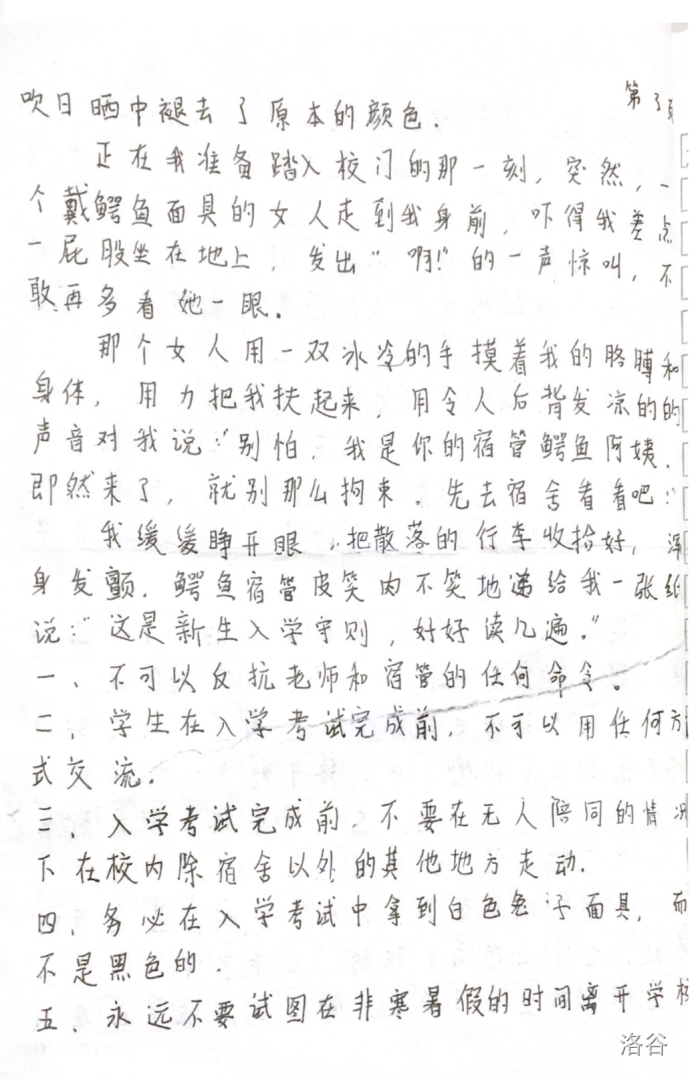 第3页
吹日晒中褪去了原本的颜色.
正在我准备踏入校门的那一刻,突然,一
个戴鳄鱼面具的女人走到我身前,吓得我差点
一屁股坐在地上,发出“啊!”的一声惊叫,不
敢再多看她一眼.
那个女人用一双冰冷的手摸着我的胳膊和
身体,用力把我扶起来,用令人后背发凉的的
声音对我说:“别怕,我是你的宿管鳄鱼阿姨.
即然来了,就别那么拘束.先去宿舍看看吧!”
我缓缓睁开眼,把散落的行李收拾好,浑
身发颤.鳄鱼宿管皮笑肉不笑地递给我一张纸
说:“这是新生入学守则,好好读几遍.”
一、不可以反抗老师和宿管的任何命令。
二、学生在入学考试完成前,不可以用任何方
式交流.
三、入学考试完成前,不要在无人陪同的情况
下在校内除宿舍以外的其他地方走动.
四、务必在入学考试中拿到白色兔子面具,而
不是黑色的.
五、永远不要试图在非寒暑假的时间离开学校
洛谷